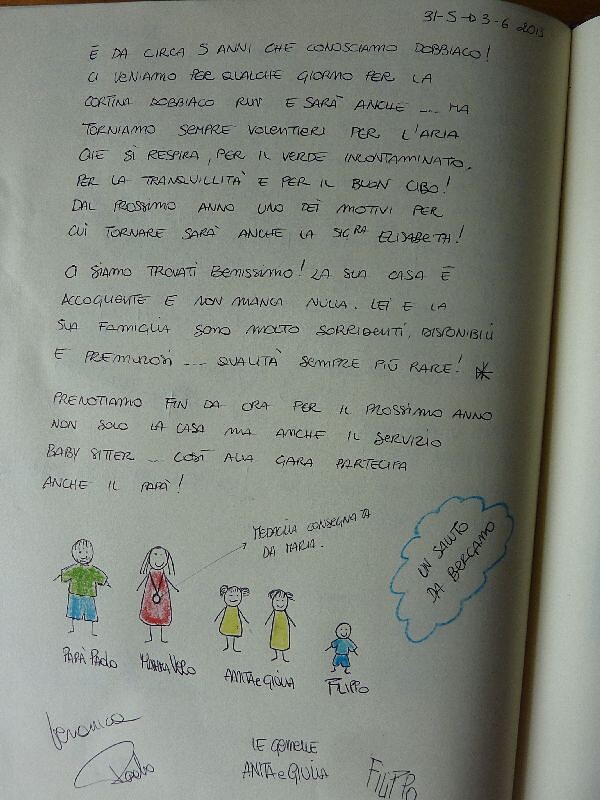 31-5 → 3-6 2013
È DA CIRCA 5 ANNI CHE CONOSCIAMO DOBBIACO!
CI VENIAMO PER QUALCHE GIORNO PER LA
CORTINA DOBBIACO RUN E SARÀ ANCHE .... MA
TORNIAMO SEMPRE VOLENTIERI PER L'ARIA
CHE SI RESPIRA, PER IL VERDE INCONTAMINATO,
PER LA TRANQUILLITÀ E PER IL BUON CIBO!
DAL PROSSIMO ANNO UNO DEI MOTIVI PER
CUI TORNARE SARÀ ANCHE LA SIG.RA ELISABETH!
CI SIAMO TROVATI BENISSIMO! LA SUA CASA È
ACCOGLIENTE E NON MANCA NULLA. LEI E LA
SUA FAMIGLIA SONO MOLTO SORRIDENTI, DISPONIBILI
E PREMUROSI .... QUALITÀ SEMPRE PIÙ RARE!
PRENOTIAMO FIN DA ORA PER IL PROSSIMO ANNO
NON SOLO LA CASA MA ANCHE IL SERVIZIO
BABY SITTER ... COSÌ ALLA GARA PARTECIPA
ANCHE IL PAPÀ!
MEDAGLIA CONSEGNATA
DA MARIA.
UN SALUTO
DA BERGAMO
PAPÀ PAOLO
MAMMA VERO
ANITA e GIULIA
FILIPPO
Veronica
Paolo
LE GEMELLE
ANITA e GIULIA
FILIPPO